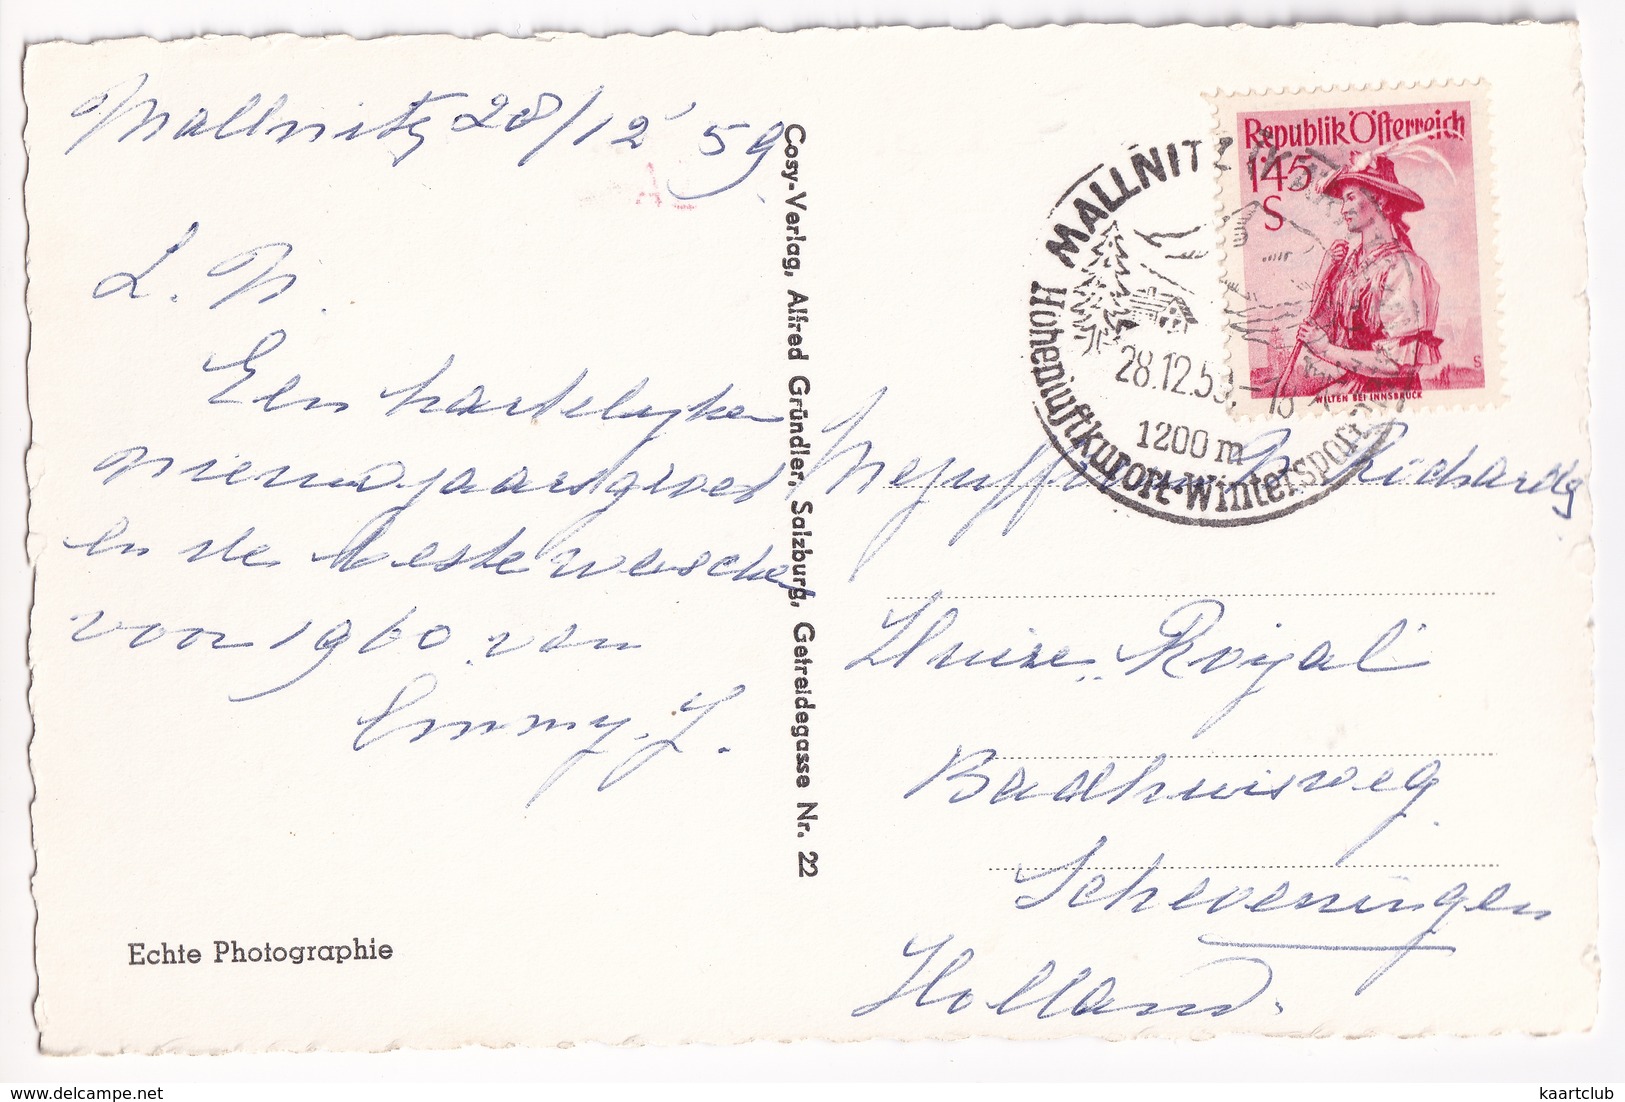 Mallnitz 28/12 '59
L. N.
Een hartelyke
nieuwjaarsgroet
en de beste wenschen
voor 1960 van
Emmy. J.
Echte Photographie
Cosy-Verlag, Alfred Gründler, Salzburg, Getreidegasse Nr. 22
Republik Österreich
1·45
S
WILTEN BEI INNSBRUCK
MALLNITZ
28.12.59.-18
1200 m
Höhenluftkurort-Wintersport
Mejuffrouw N. Richards
Huize "Royal"
Badhuisweg
Scheveningen
Holland.
delcampe.net
kaartclub